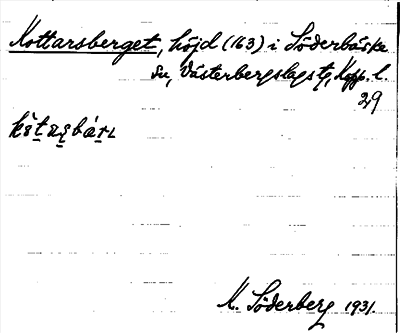 Kottarsberget, höjd (163) i Söderbärke
sn, Västerbergslags tg, Kopp. l.
29
M. Söderberg 1931.